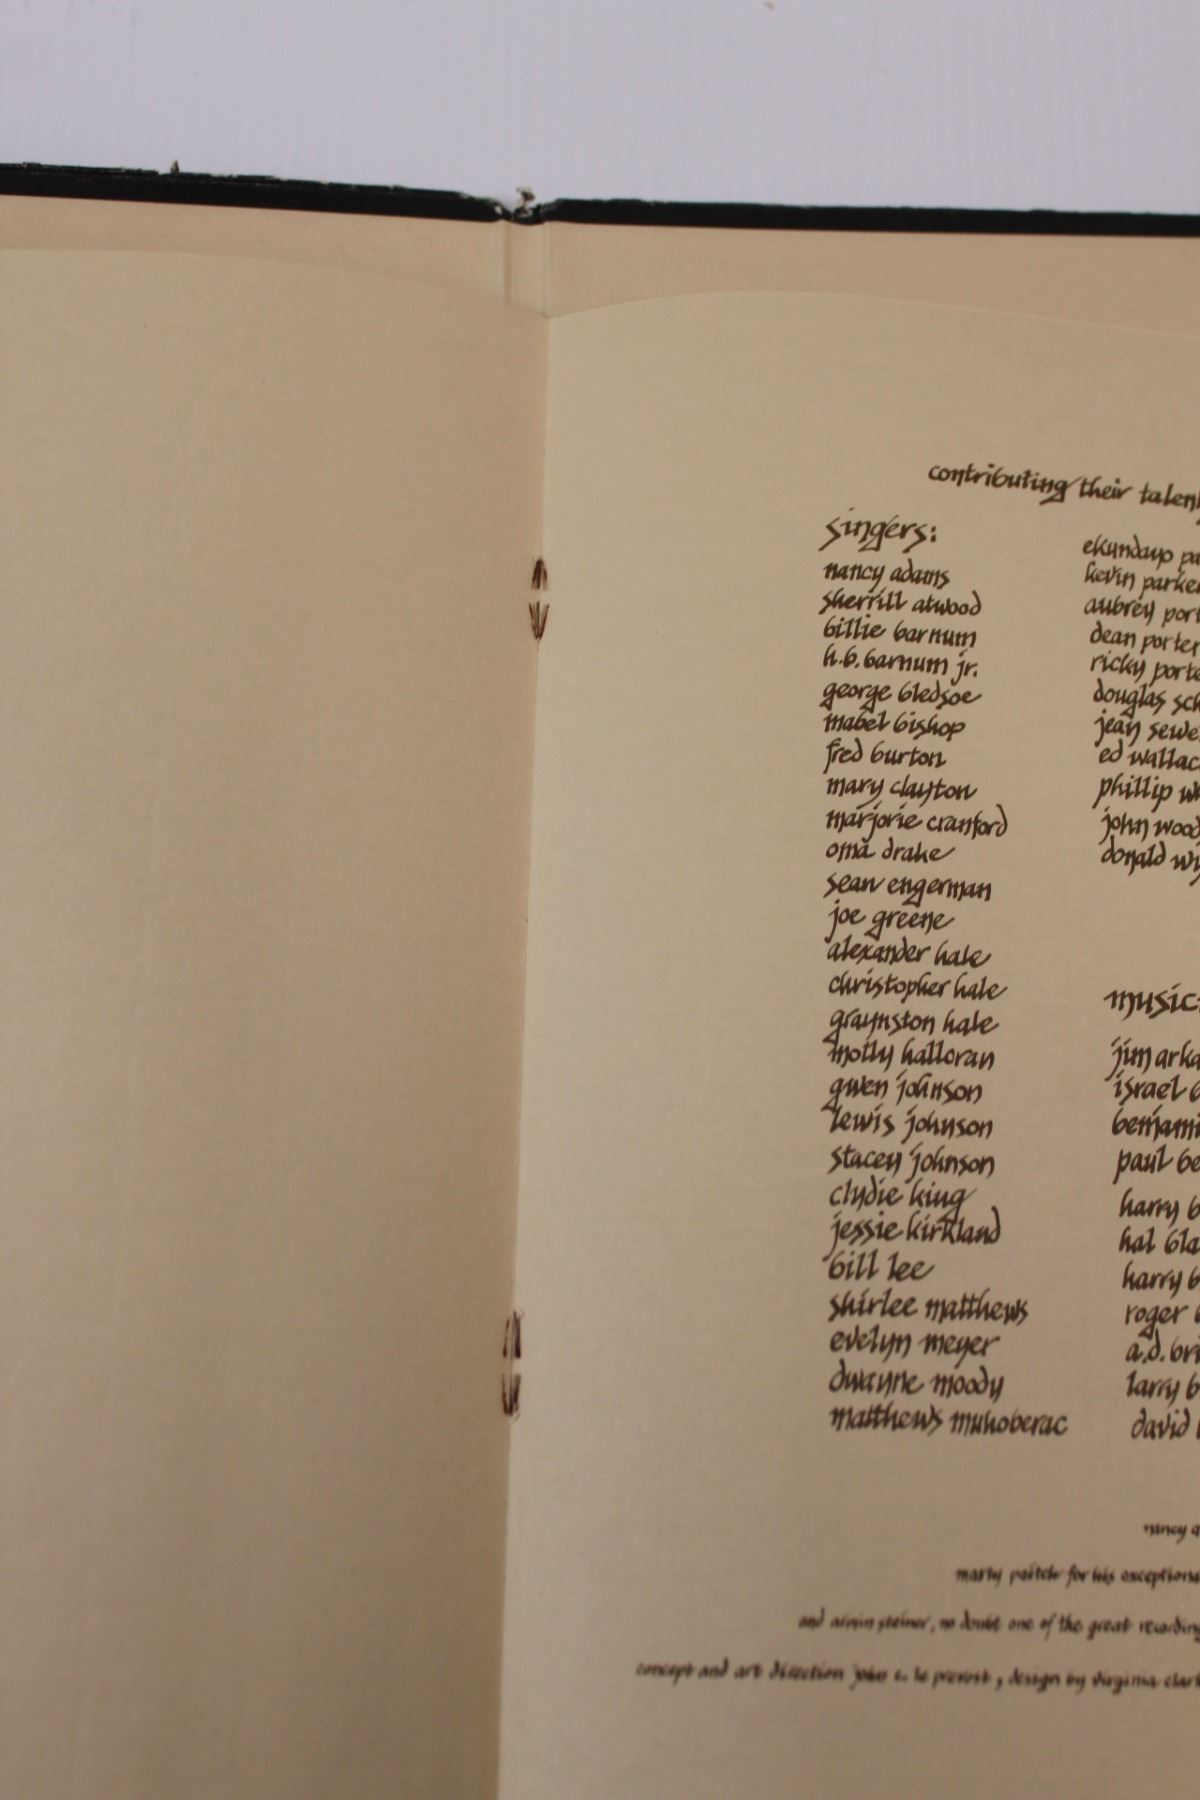 contributing their talen
singers:
nancy adams
sherrill atwood
billie barnum
h.b. barnum jr.
george bledsoe
mabel bishop
fred burton
mary clayton
marjorie cranford
oma drake
sean engerman
joe greene
alexander hale
christopher hale
graynston hale
molly halloran
gwen johnson
lewis johnson
stacey johnson
clydie king
jessie kirkland
bill lee
shirlee matthews
evelyn meyer
dwayne moody
matthews muhoberac
ekundayo pa
kevin parke
aubrey port
dean porter
ricky porte
douglas sch
jean sewe
ed wallac
phillip w
john wood
donald wy
music:
jim arka
israel b
benjami
paul be
harry b
hal bla
harry b
roger
a.d. bri
larry b
david
nancy a
marty paitch for his exceptiona
and armin steiner, no doubt one of the great recording
concept and art direction john c. le prevost, design by virginia clark